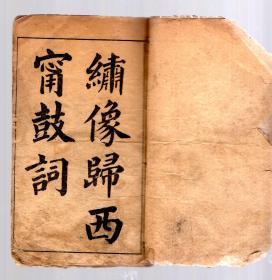 繡像歸西
甯鼓詞